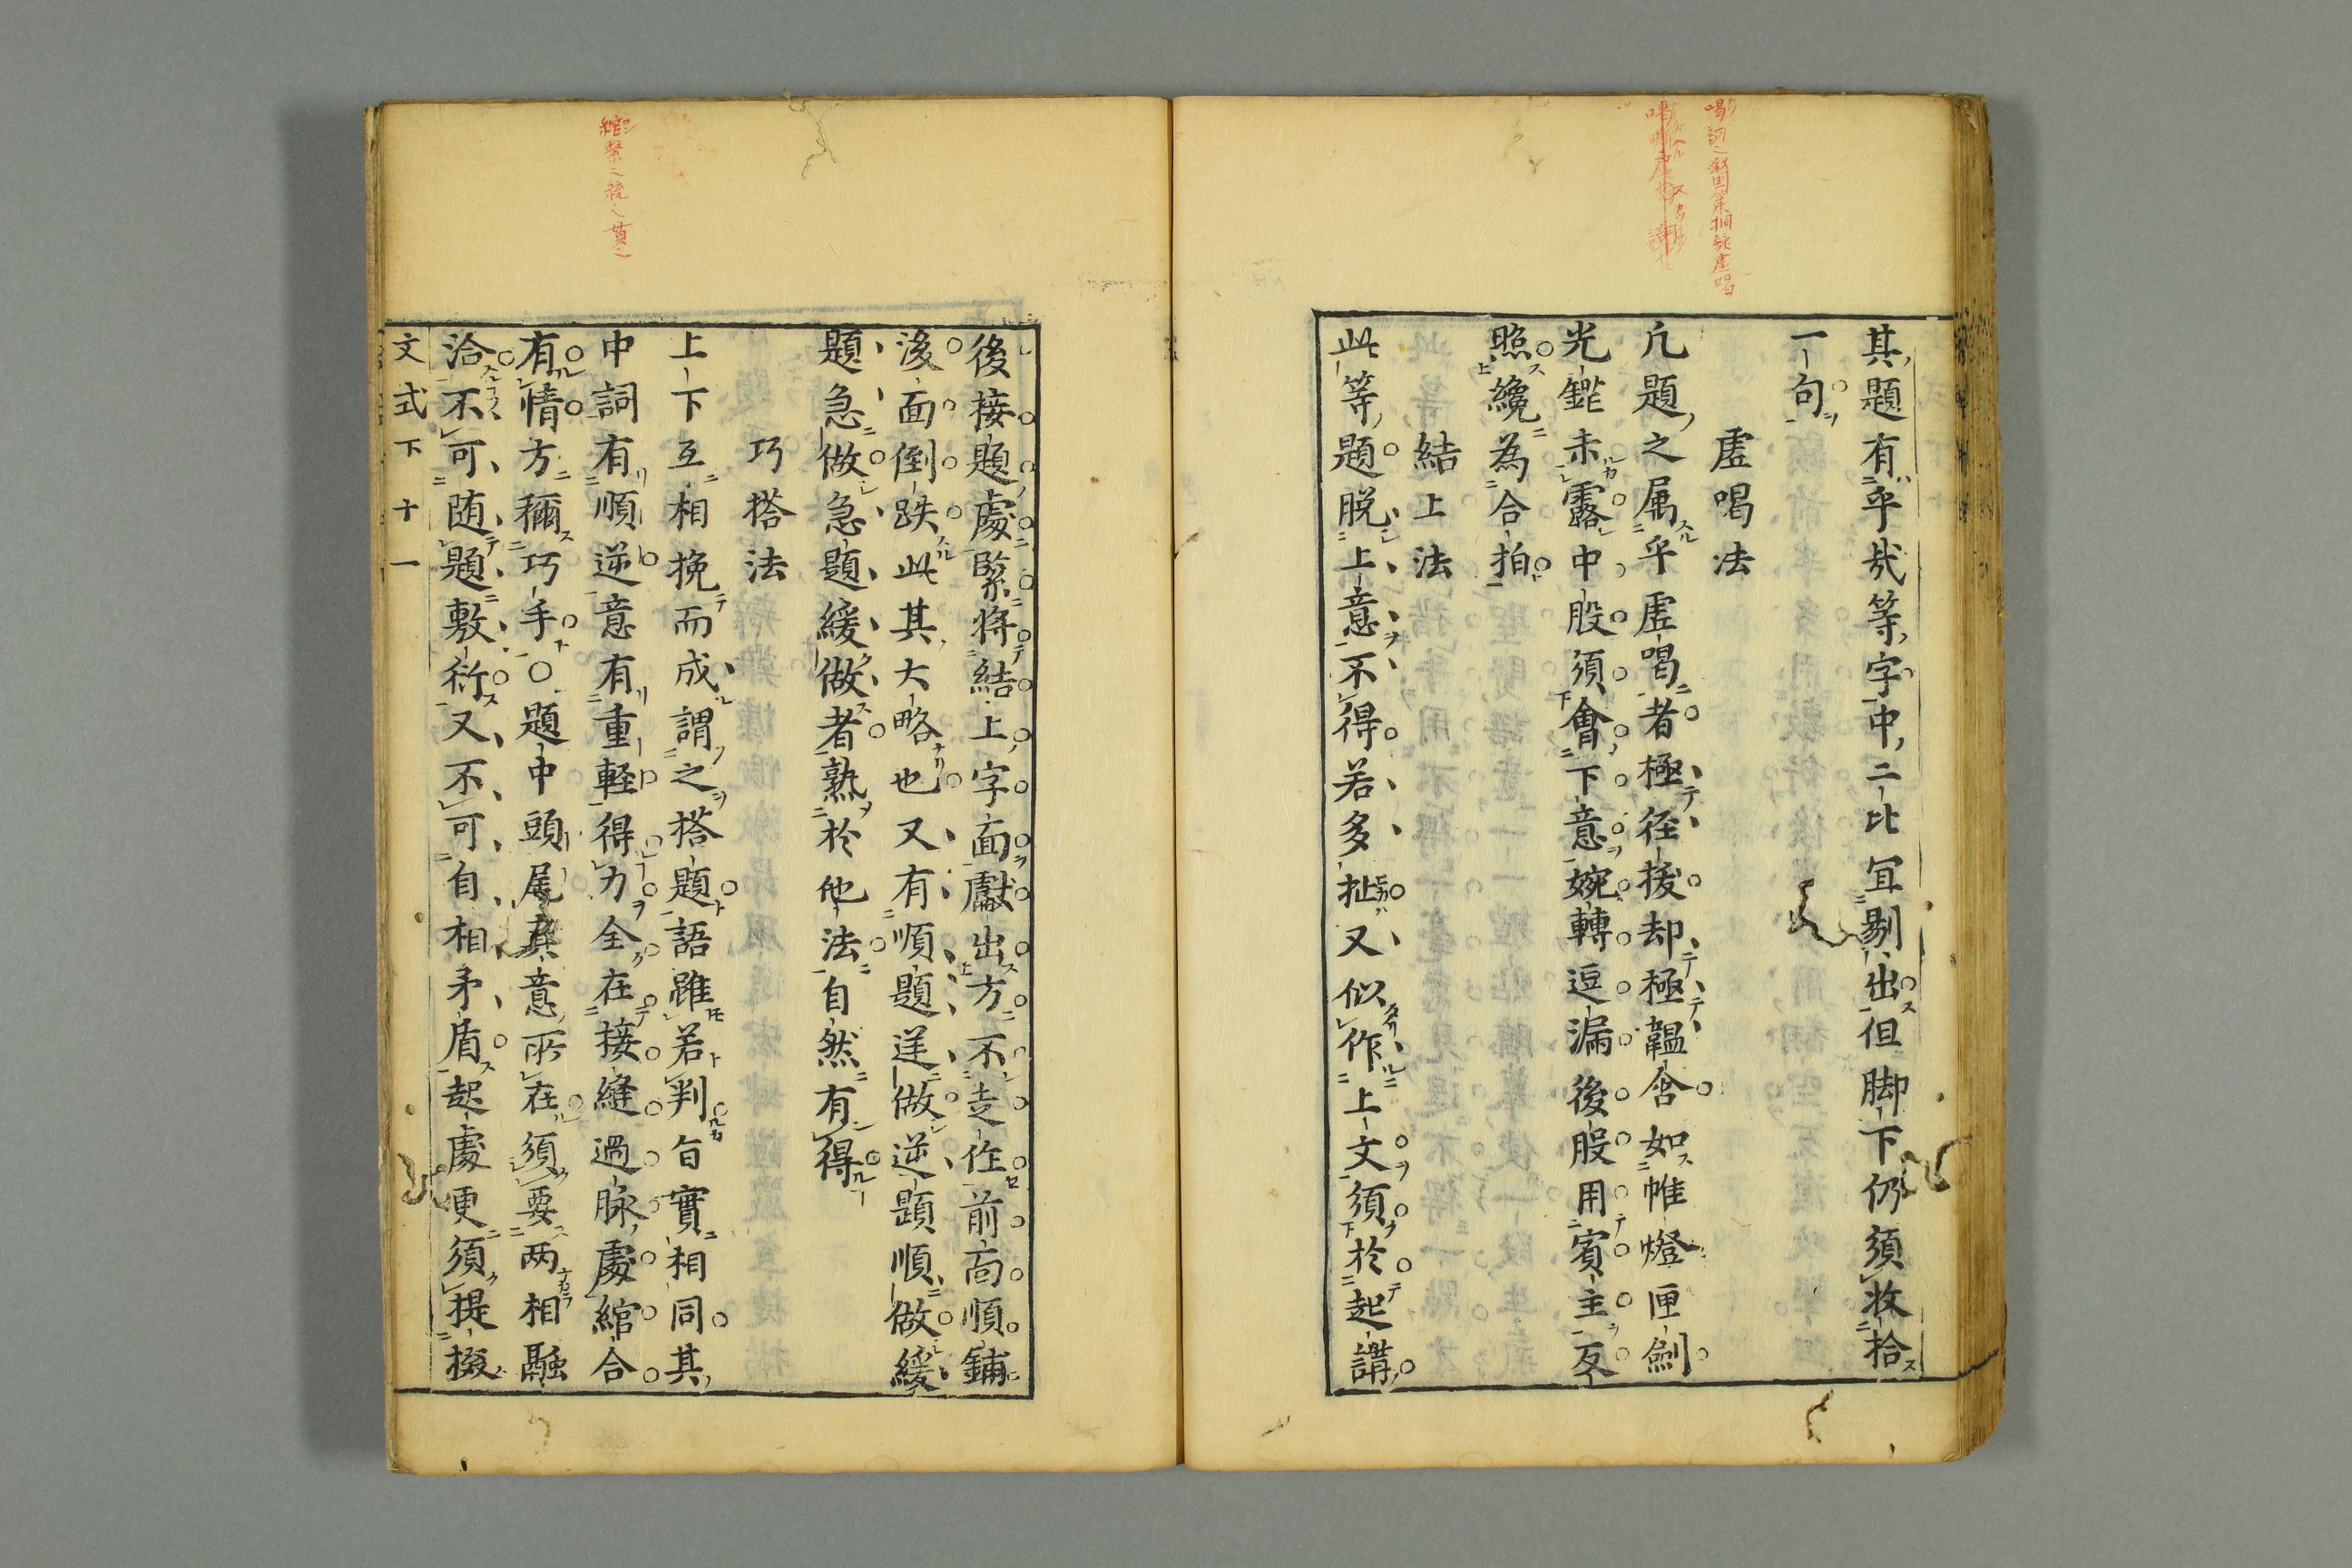 其題有乎哉等字中二比冝剔出但脚下仍須收拾
一句
虗喝法
凢題之属乎虗喝者極徑捷却極韞含如帷燈匣劍
光鋩未露中股須會下意婉轉逗漏後股用賓主互
照纔為合拍
結上法
此等題脱上意不得若多扯又似作上文須於起講
後接題處緊將結上字面獻出方不走作前向順鋪
後面倒跌此其大略也又有順題逆做逆題順做緩
題急做急題緩做者熟於他法自然有得
巧搭法
上下互相挽而成謂之搭題語雖若判旨實相同其
中詞有順逆意有重輕得力全在接縫過脉處綰合
有情方稱巧手○題中頭尾真意所在須要两相融
洽不可随題敷衍又不可自相矛盾起處更須提掇
文式下 十一
綰繫之統之貫之